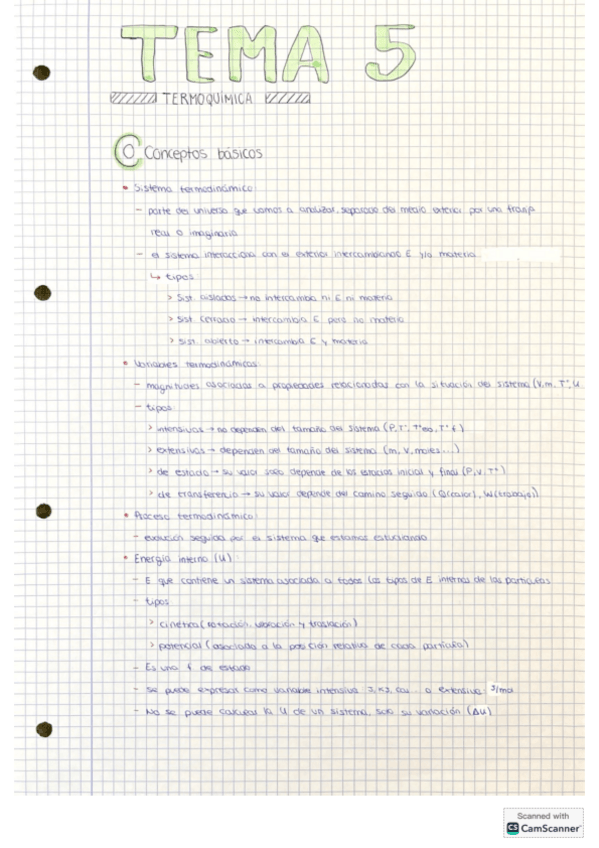 TEMA 5
TERMOQUÍMICA
0 Conceptos básicos
• Sistema termodinámico:
– parte del universo que vamos a analizar, separado del medio exterior por una franja
real o imaginaria
– el sistema interacciona con el exterior intercambiando E y/o materia
↳ tipos
> Sist. aislados → no intercambia ni E ni materia
> Sist. cerrado → intercambia E pero no materia
> sist. abierto → intercambia E y materia
• Variables termodinámicas:
– magnitudes asociadas a propiedades relacionadas con la situación del sistema (V, m, Tª, U,
– tipos
> intensivas → no dependen del tamaño del sistema (P, Tª, Tªeb, Tªf)
> extensivas → dependen del tamaño del sistema (m, V, moles...)
> de estado → su valor solo depende de los estados inicial y final (P, V, Tª)
> de transferencia → su valor depende del camino seguido (Q(calor), W(trabajo))
• Proceso termodinámico:
– evolución seguida por el sistema que estamos estudiando
• Energía interna (U):
– E que contiene un sistema asociada a todos los tipos de E internas de las partículas
– tipos
> cinética (rotación, vibración y traslación)
> potencial (asociada a la posición relativa de cada partícula)
– Es una f de estado
– Se puede expresar como variable intensiva J, KJ, cal o extensiva J/mol
– No se puede calcular la U de un sistema, solo su variación (ΔU)
Scanned with
CS CamScanner